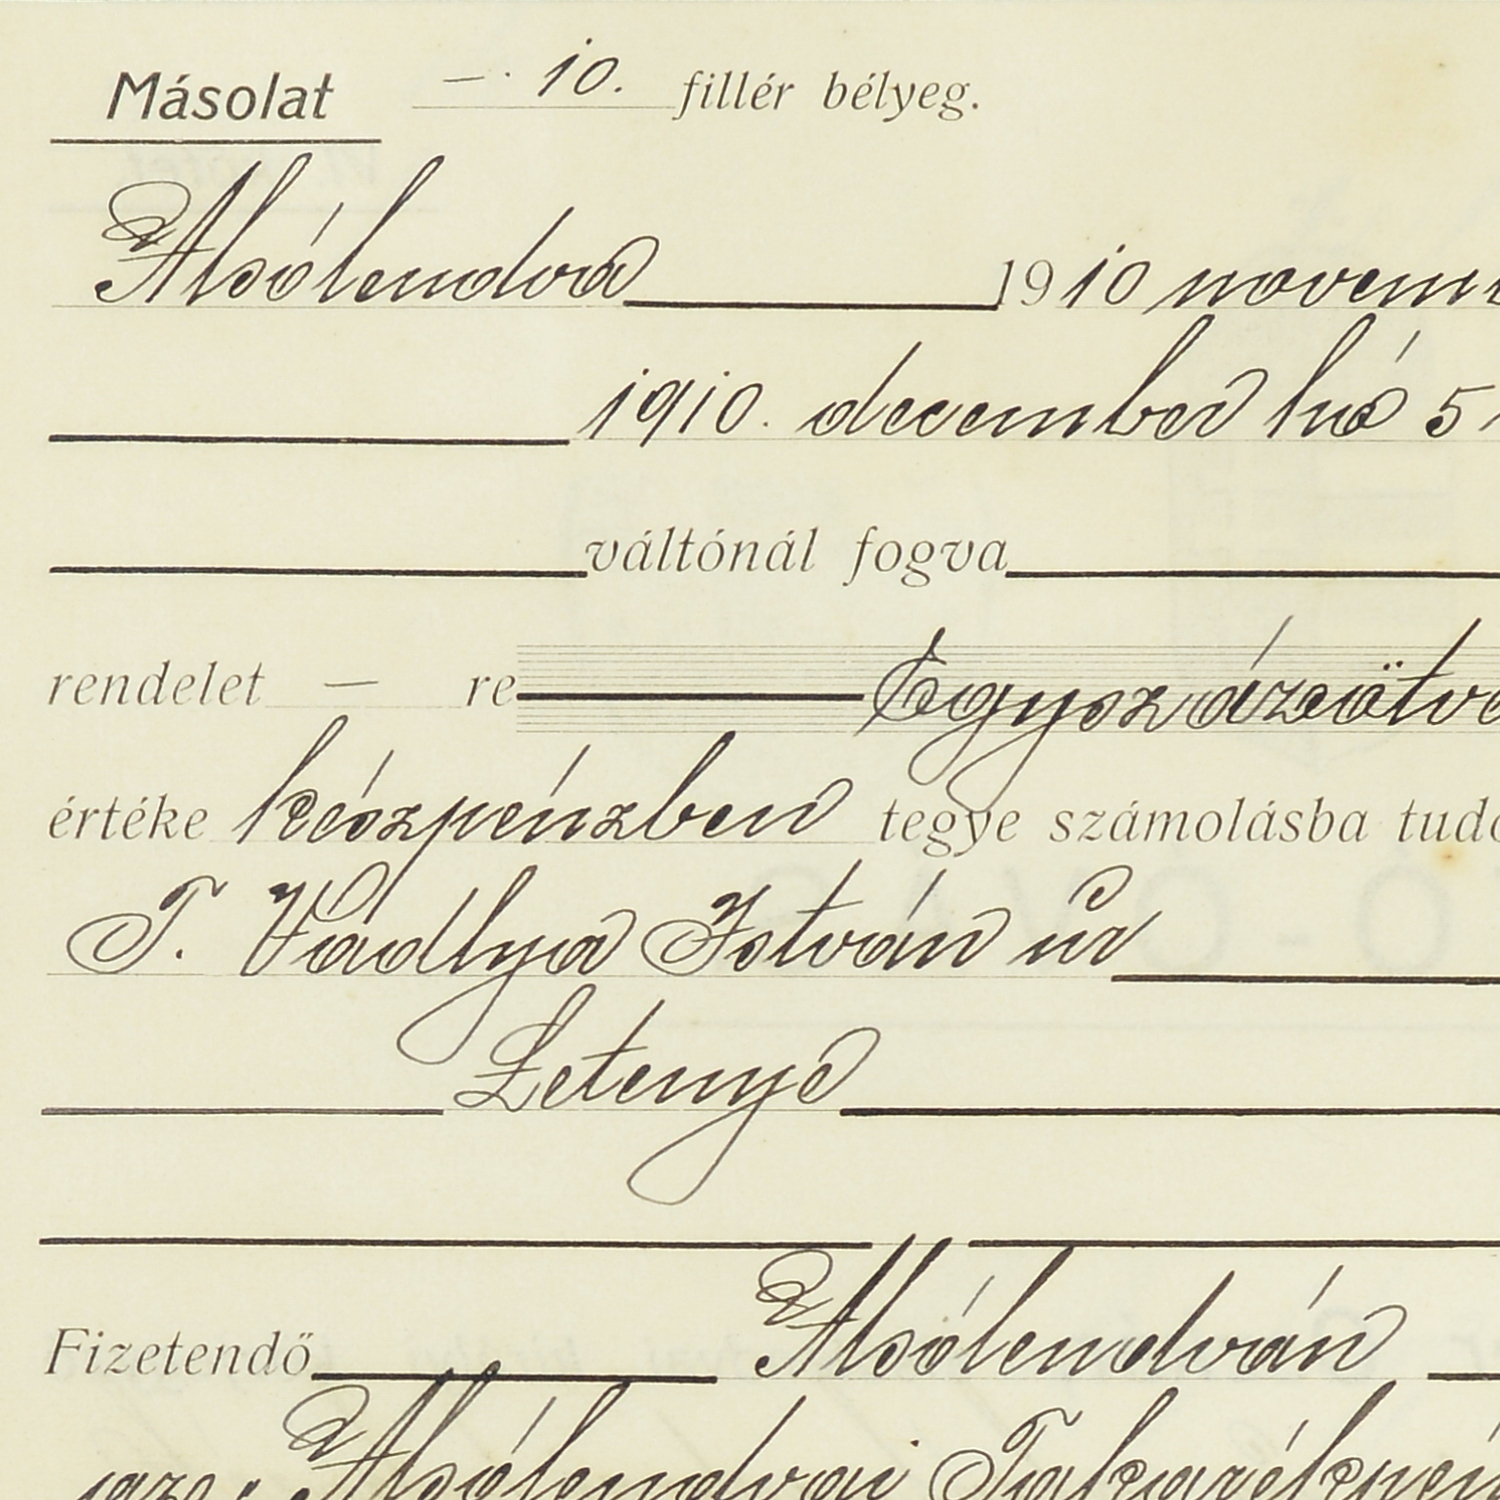 Másolat —. 10. fillér bélyeg.
Alsólendva 1910 novem
1910. december hó 5
váltónál fogva
rendelet — re Egyszázötv
értéke készpénzben tegye számolásba tudo
T. Vadlya István úr
Letenye
Fizetendő Alsólendván
Alsólendvai Takarékpén